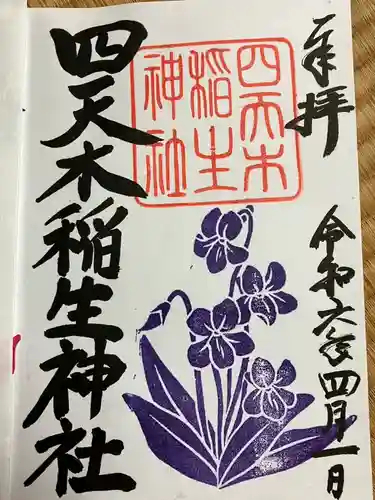 奉拝
令和六年四月一日
四天木
稲生
神社
四天木稲生神社